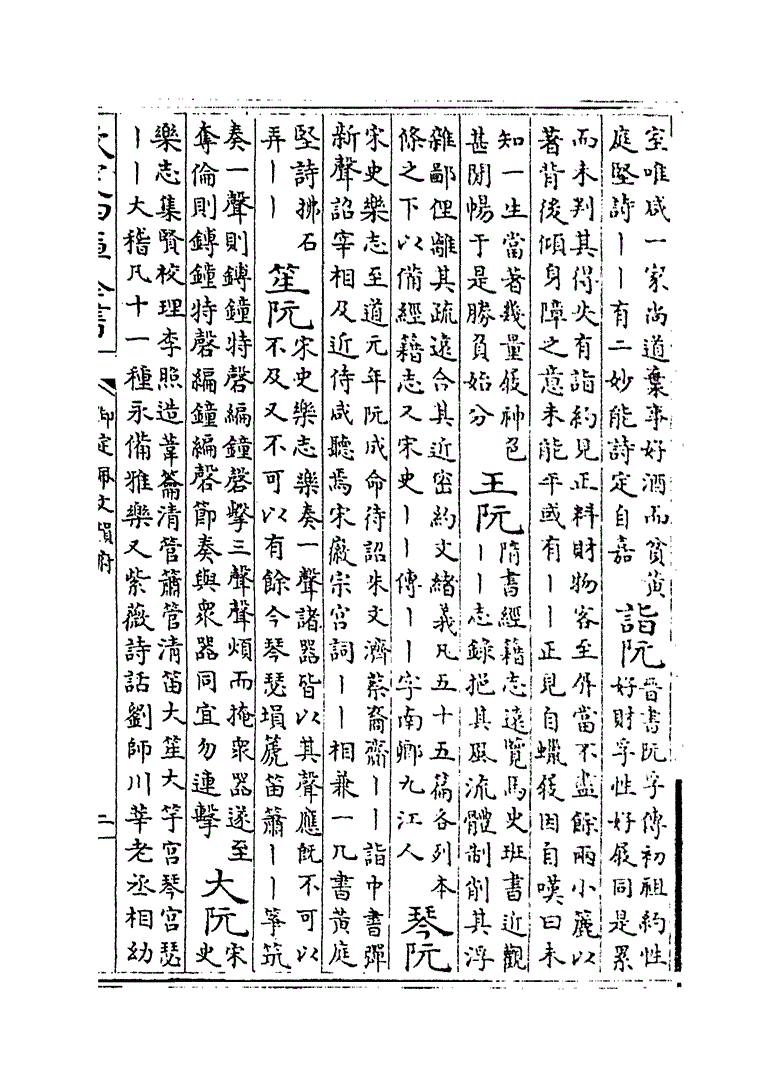 室唯咸一家尚道棄事好酒而貧黃
庭堅詩丨丨有二妙能詩定自嘉
詣阮
晉書阮孚傳初祖約性
好財孚性好屐同是累
而未判其得失有詣約見正料財物客至屏當不盡餘兩小簏以
著背後傾身障之意未能平或有丨丨正見自蠟屐因自嘆曰未
知一生當著幾量屐神色
甚閒暢于是勝負始分
王阮
隋書經籍志遠覽馬史班書近觀
丨丨志錄挹其風流體制削其浮
雜鄙俚離其疏遠合其近密約文緒義凡五十五篇各列本
條之下以備經籍志又宋史丨丨傳丨丨字南鄉九江人
琴阮
宋史樂志至道元年阮成命待詔朱文濟蔡裔齋丨丨詣中書彈
新聲詔宰相及近侍咸聽焉宋徽宗宮詞丨丨相兼一几書黃庭
堅詩拂石
弄丨丨
笙阮
宋史樂志樂奏一聲諸器皆以其聲應既不可以
不及又不可以有餘今琴瑟塤篪笛簫丨丨箏筑
奏一聲則鎛鐘特磬編鐘磬擊三聲聲煩而掩衆器遂至
奪倫則鎛鐘特磬編鐘編磬節奏與衆器同宜勿連擊
大阮
宋
史
樂志集賢校理李照造葦籥清管簫管清笛大笙大竽宮琴宮瑟
丨丨大稽凡十一種永備雅樂又紫薇詩話劉師川莘老丞相幼
欽定四庫全書
御定佩文韻府
二